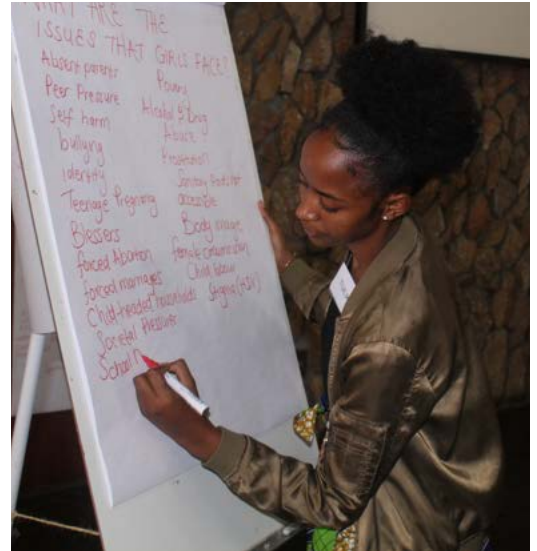 WHAT ARE THE
ISSUES THAT GIRLS FACE?
Absent parents
Peer Pressure
Self harm
bullying
identity
Teenage Pregnancy
Blessers
forced Abortion
forced marriages
Child-headed households
Societal Pressures
School
Poverty
Alcohol & Drug
Abuse
Prostitution
Sanitary
not
accessible
Body
female
Child labour
Stigma